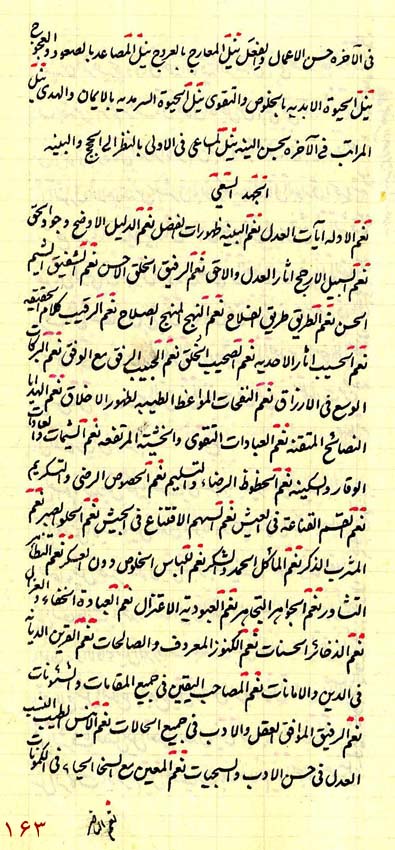 فی الآخره حسن الاعمال والفعل نیل المعارج بالعروج نیل المصاعد بالصعود والعروج
نیل الحیوة الابدیه بالخلوص والتقوی نیل الحیوة السرمدیه بالایمان والهدی نیل
المراتب فی الآخره بحسن النیه نیل مساعی فی الاولی بالنظر الی الحجج والبینه
الجهد السعی
نعم الادله آیات العدل نعم البینه ظهورات الفضل نعم الدلیل الاوضح وجود الحق
نعم السبیل الارجح آثار العدل والاحق نعم الرفیق الخلق الاحسن نعم الشفیق الشیم
الحسن نعم الطریق طریق الفلاح نعم النهج المنهج الصلاح نعم الرقیب کلام الحقیقه
نعم الحسیب آثار الاحدیه نعم الصحیب الخلق نعم الحبیب الرفق مع الوفق نعم البرکات
الوسع فی الارزاق نعم النفحات المواعظ الطیبه لظهور الاخلاق نعم الهدایا
النصائح المتقنه نعم العبادات التقوی والخشیة المرتفعه نعم الشیمات والعادات
الوقار والسکینه نعم الحظوظ الرضاء والتسلیم نعم الخصوص الرضی والتکریم
نعم القسم القناعة فی العیش نعم السهم الاقتناع فی الجیش نعم الحلو الصبر نعم
المشرب الذکر نعم الماکل الحمد والشکر نعم اللباس الخلوص دون العسکر نعم التظاهر
التشاور نعم الجواهر التجاهر نعم العبودیة الاعتزال نعم العبادة الخفاء والعزال
نعم الذخائر الحسنات نعم الکنوز المعروف والصالحات نعم القرین الدیانة
فی الدین والامانات نعم المصاحب الیقین فی جمیع المقامات والشئونات
نعم الرفیق الموافق العقل والادب فی جمیع الحالات نعم الانیس لطیب النسیب
العدل فی حسن الادب والسجیات نعم المعین مع السخا الحیاء فی الکمونات
نعم
۱۶۳